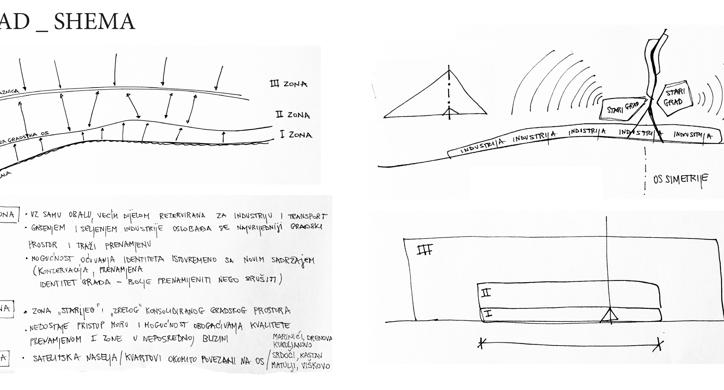 AD _ SHEMA
III ZONA
II ZONA
I ZONA
GRADSKA OS
STARI GRAD
STARI
GRAD
INDUSTRIJA INDUSTRIJA INDUSTRIJA INDUSTRIJA INDUSTRIJA
OS SIMETRIJE
III
II
I
ONA • UZ SAMU OBALU, VEĆIM DIJELOM REZERVIRANA ZA INDUSTRIJU I TRANSPORT
• GAŠENJEM I SELJENJEM INDUSTRIJE OSLOBAĐA SE NAJVRIJEDNIJI GRADSKI
PROSTOR I TRAŽI PRENAMJENU
• MOGUĆNOST OČUVANJA IDENTITETA ISTOVREMENO SA NOVIM SADRŽAJEM
(KONZERVACIJA, PRENAMJENA
IDENTITET GRADA - BOLJE PRENAMIJENITI NEGO SRUŠITI)
NA • ZONA "STARIJEG", "ZRELOG" KONSOLIDIRANOG GRADSKOG PROSTORA
• NEDOSTAJE PRISTUP MORU I MOGUĆNOST OBOGAĆIVANJA KVALITETE
PRENAMJENOM I ZONE U NEPOSREDNOJ BLIZINI
A • SATELITSKA NASELJA/KVARTOVI OKOMITO POVEZANI NA OS /
MARINIĆI, DRENOVA
KUKULJANOVO
SRDOČI, KASTAV
MATULJI, VIŠKOVO